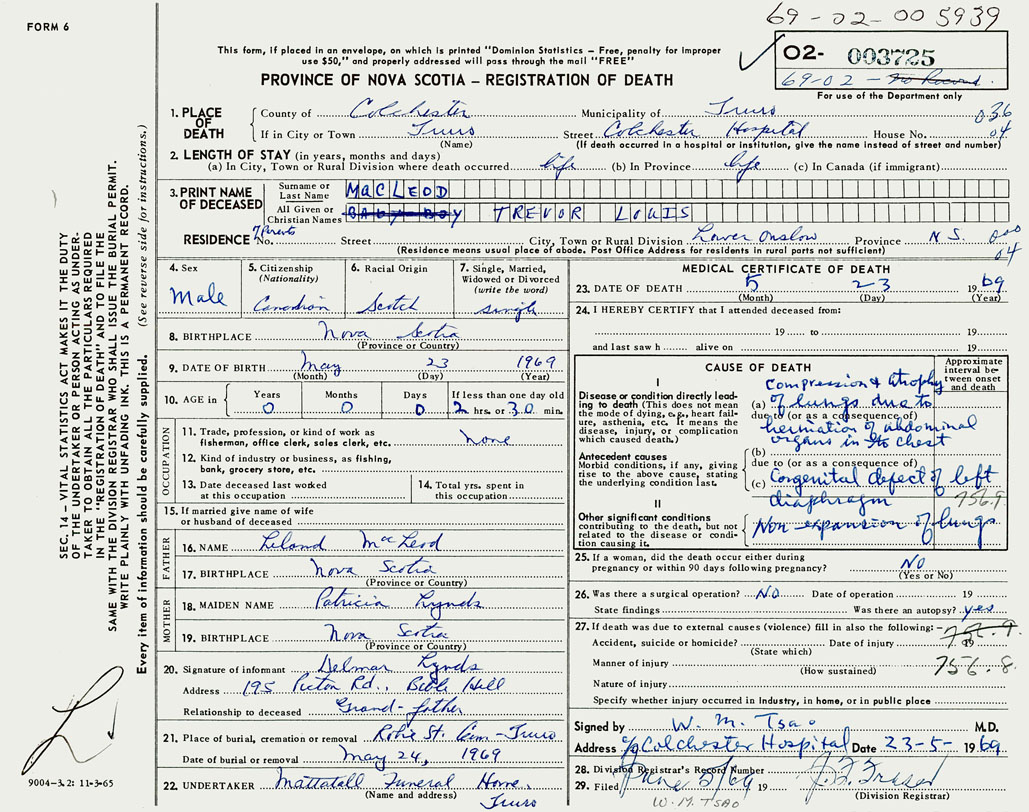 FORM 6
69-02-005939
This form, if placed in an envelope, on which is printed "Dominion Statistics – Free, penalty for improper
use $50," and properly addressed will pass through the mail "FREE"
O2- 003725
PROVINCE OF NOVA SCOTIA – REGISTRATION OF DEATH
69-02 –
For use of the Department only
1. PLACE OF DEATH
County of Colchester Municipality of Truro 036
If in City or Town Truro Street Colchester Hospital House No. 04
(Name) (If death occurred in a hospital or institution, give the name instead of street and number)
2. LENGTH OF STAY (in years, months and days)
(a) In City, Town or Rural Division where death occurred life (b) In Province life (c) In Canada (if immigrant)
3. PRINT NAME OF DECEASED
Surname or Last Name MacLEOD
All Given or Christian Names BABY BOY TREVOR LOUIS
RESIDENCE No. Parents Street City, Town or Rural Division Lower Onslow Province N S. 000
(Residence means usual place of abode. Post Office Address for residents in rural parts not sufficient) 04
4. Sex Male
5. Citizenship (Nationality) Canadian
6. Racial Origin Scotch
7. Single, Married, Widowed or Divorced (write the word) single
8. BIRTHPLACE Nova Scotia
(Province or Country)
9. DATE OF BIRTH May 23 1969
(Month) (Day) (Year)
10. AGE in Years 0 Months 0 Days 0 If less than one day 2 hrs. or 30 min.
OCCUPATION
11. Trade, profession, or kind of work as
fisherman, office clerk, sales clerk, etc. None
12. Kind of industry or business, as fishing,
bank, grocery store, etc.
13. Date deceased last worked
at this occupation
14. Total yrs. spent in
this occupation
15. If married give name of wife
or husband of deceased
FATHER
16. NAME Leland MacLeod
17. BIRTHPLACE Nova Scotia
(Province or Country)
MOTHER
18. MAIDEN NAME Patricia Lynds
19. BIRTHPLACE Nova Scotia
(Province or Country)
20. Signature of informant Delmar Lynds
Address 195 Picton Rd., Bible Hill
Relationship to deceased Grand-father
21. Place of burial, cremation or removal Robie St. Cem-Truro
Date of burial or removal May 24, 1969
22. UNDERTAKER Mattatall Funeral Home,
(Name and address) Truro
MEDICAL CERTIFICATE OF DEATH
23. DATE OF DEATH 5 23 1969
(Month) (Day) (Year)
24. I HEREBY CERTIFY that I attended deceased from:
19 to 19
and last saw h alive on 19
CAUSE OF DEATH
Approximate interval between onset and death
I
Disease or condition directly leading to death (This does not mean the mode of dying, e.g., heart failure, asthenia, etc. It means the disease, injury, or complication which caused death.)
compression & atrophy
(a) of lungs due to
due to (or as a consequence of)
herniation of abdominal
organs in to chest
Antecedent causes
Morbid conditions, if any, giving rise to the above cause, stating the underlying condition last.
(b)
due to (or as a consequence of)
(c) Congenital defect of left
diaphragm 756.9
II
Other significant conditions contributing to the death, but not related to the disease or condition causing it.
Non expansion of lungs
25. If a woman, did the death occur either during
pregnancy or within 90 days following pregnancy? NO
(Yes or No)
26. Was there a surgical operation? NO Date of operation 19
State findings Was there an autopsy? yes
27. If death was due to external causes (violence) fill in also the following:
Accident, suicide or homicide? Date of injury 19
(State which)
Manner of injury 756.8
(How sustained)
Nature of injury
Specify whether injury occurred in industry, in home, or in public place
Signed by W. M. Tsao M.D.
Address c/o Colchester Hospital Date 23-5-1969
28. Division Registrar's Record Number
29. Filed June 5/69 19 J. F. Fraser
(Division Registrar)
W. M. TSAO
SEC. 14 – VITAL STATISTICS ACT MAKES IT THE DUTY
OF THE UNDERTAKER OR PERSON ACTING AS UNDER-
TAKER TO OBTAIN ALL THE PARTICULARS REQUIRED
IN THE "REGISTRATION OF DEATH" AND FILE THE
SAME WITH THE DIVISION REGISTRAR WHO SHALL ISSUE THE BURIAL PERMIT.
WRITE PLAINLY WITH UNFADING INK. THIS IS A PERMANENT RECORD.
Every item of information should be carefully supplied. (See reverse side for instructions.)
9004-3.2: 11-3-65